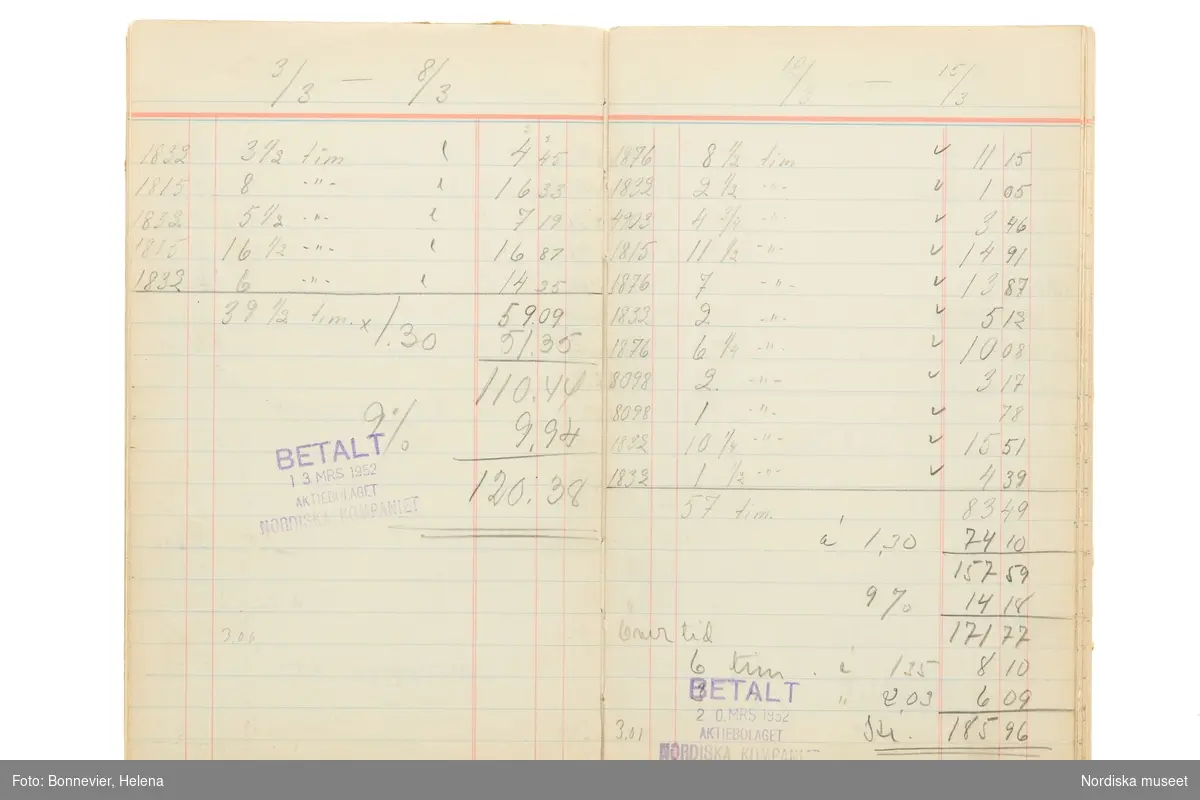 3/3 — 8/3
1832 3 1/2 tim 4 45
1815 8 -"- 16 33
1832 5 1/2 -"- 7 19
1815 16 1/2 -"- 16 87
1832 6 -"- 14 25
39 1/2 tim. x 1.30 59.09
51.35
110.44
9% 9.94
120.38
BETALT
13 MRS 1952
AKTIEBOLAGET
NORDISKA KOMPANIET
3.06
10/3 — 15/3
1876 8 1/2 tim ✓ 11 15
1832 2 1/2 -"- ✓ 1 05
4903 4 3/4 -"- ✓ 3 46
1815 11 1/2 -"- ✓ 14 91
1876 7 -"- ✓ 13 87
1832 2 -"- ✓ 5 12
1876 6 1/4 -"- ✓ 10 08
8098 2 -"- ✓ 3 17
8098 1 -"- ✓ 78
1832 10 1/4 -"- ✓ 15 51
1832 1 1/2 -"- ✓ 4 39
57 tim. 83 49
á 1,30 74 10
157 59
9% 14 18
Över tid 171 77
6 tim. á 1.35 8 10
3 " 2,03 6 09
3.01 Kr. 185 96
BETALT
20. MRS 1952
AKTIEBOLAGET
NORDISKA KOMPANIET
Foto: Bonnevier, Helena
Nordiska museet